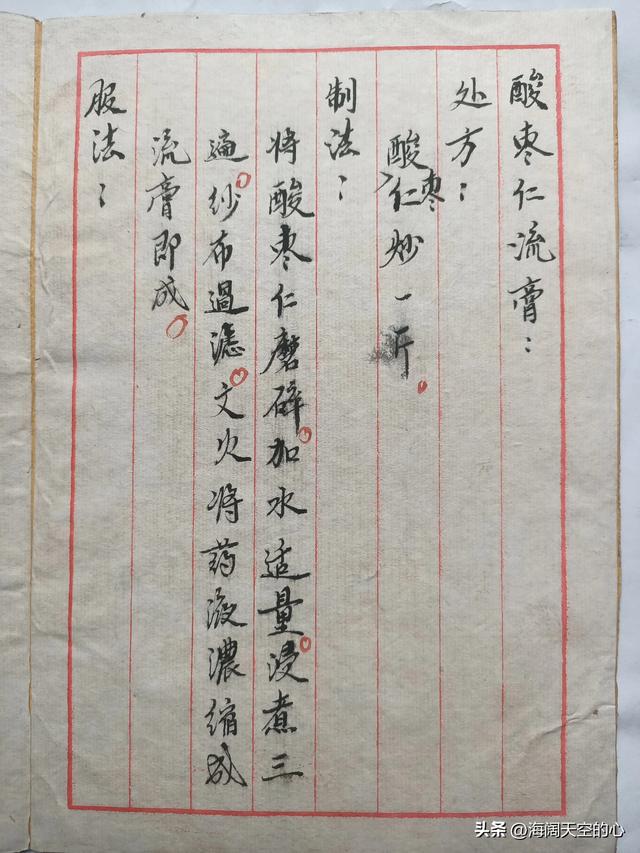 酸枣仁流膏：
处方：
酸枣仁炒一斤。
制法：
将酸枣仁磨碎。加水适量。浸煮三
遍。纱布過滤。文火将药液濃缩成
流膏即成。
服法：
头条 @海阔天空的心